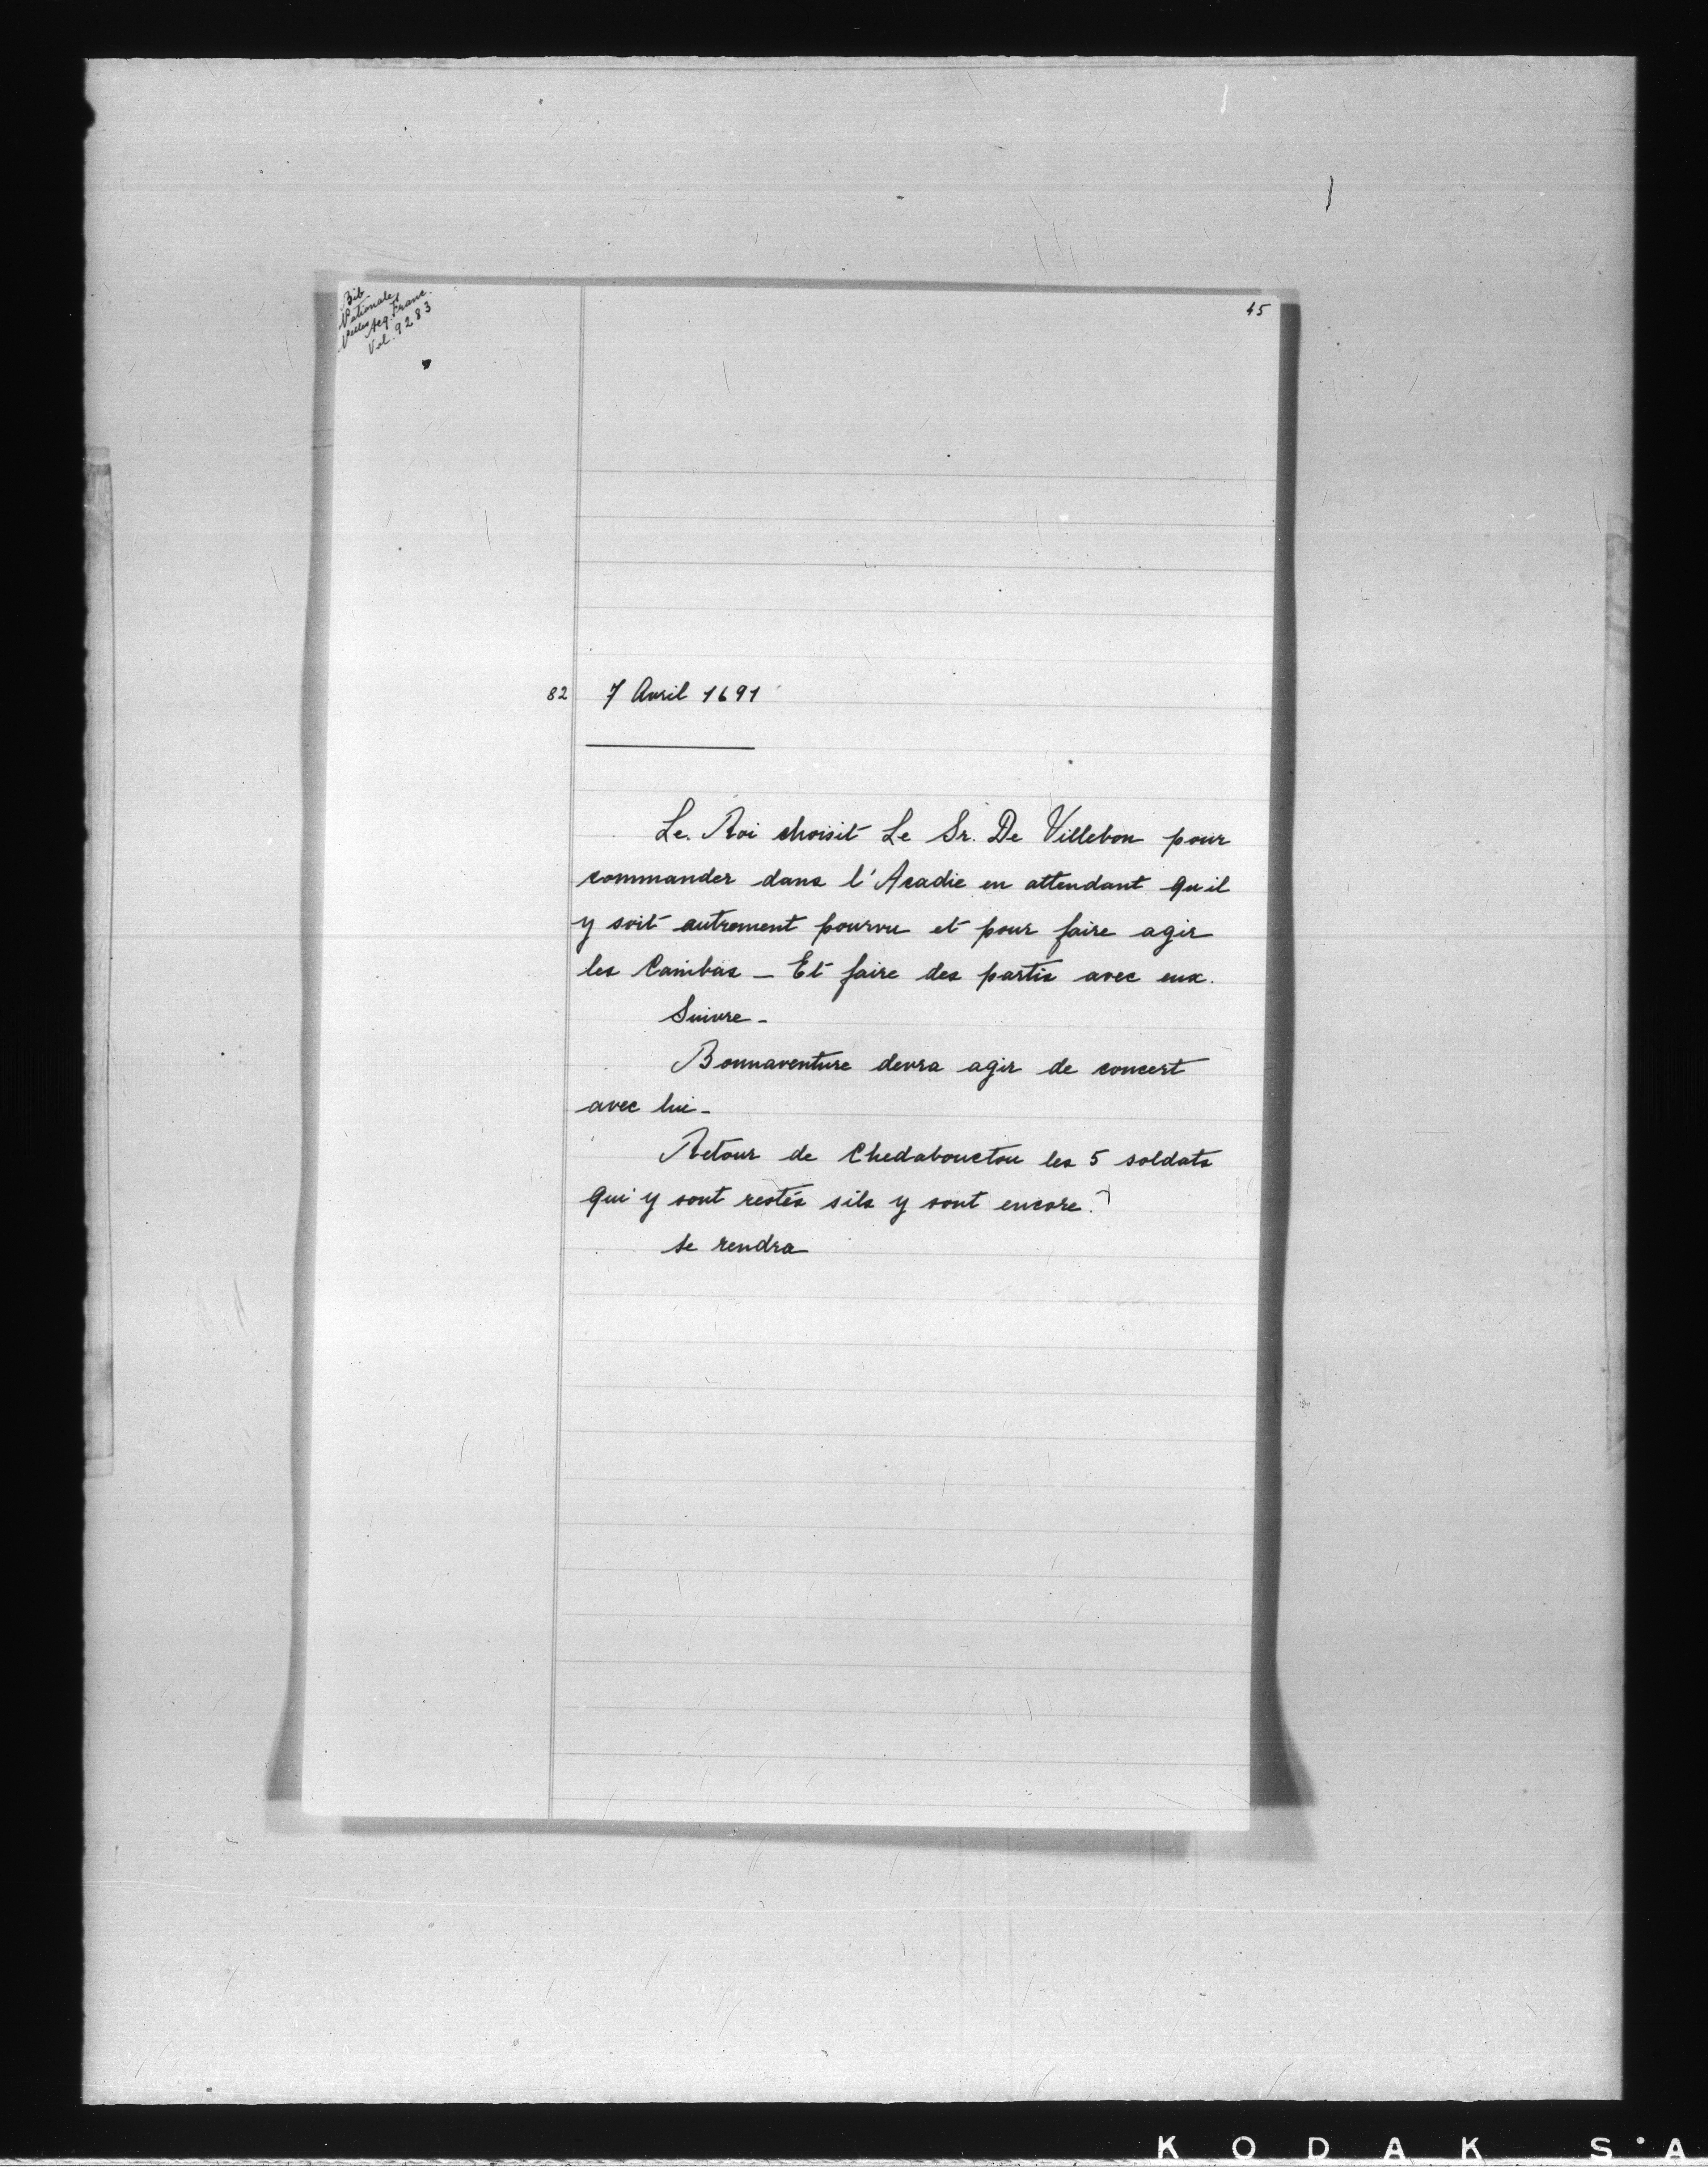 Bib
Nationale
Nelles Acq. Franc.
Vol. 9283
45
82 7 Avril 1691
Le Roi choisit Le Sr. De Villebon pour
commander dans l'Acadie en attendant qu'il
y soit autrement pourvu et pour faire agir
les Canibas _ Et faire des partis avec eux.
Suivre _
Bonnaventure devra agir de concert
avec lui _
Retour de Chedabouctou les 5 soldats
qui y sont restés sils y sont encore.
se rendra
KODAK S•A